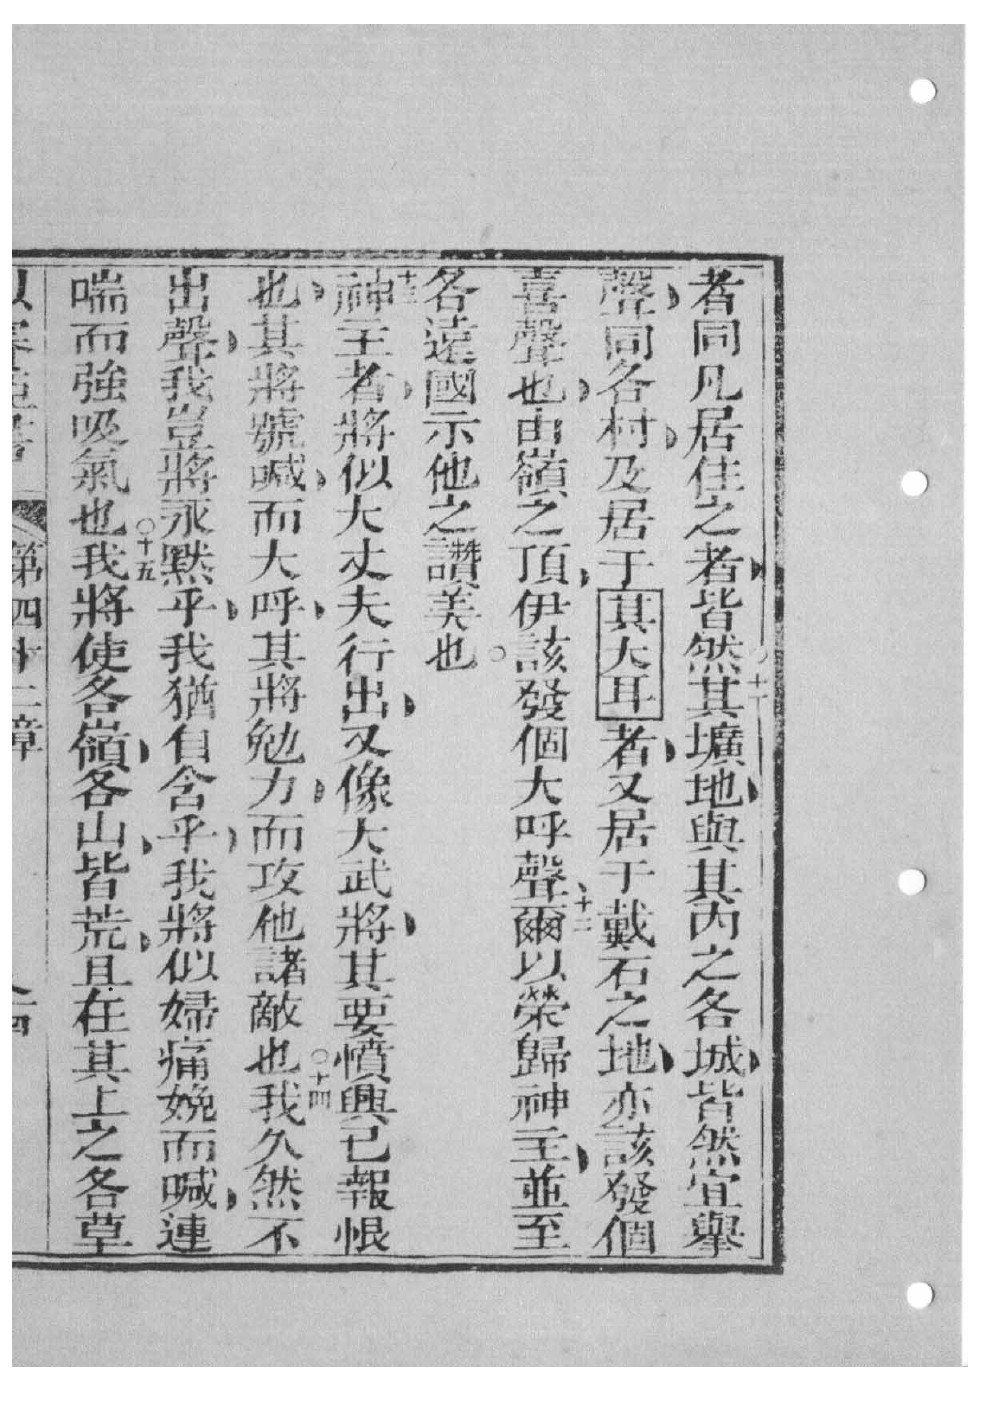 者同凡居住之者皆然○十一其壙地與其內之各城皆然宜舉
聲同各村及居于其大耳者又居于戴石之地亦該發個
喜聲也由嶺之頂伊該發個大呼聲○十二爾以榮歸神主並至
各遠國示他之讚美也○
十三神主者將似大丈夫行出又像大武將其要憤興己報恨
也其將號喊而大呼其將勉力而攻他諸敵也○十四我久然不
出聲我豈將永默乎我猶自含乎我將似婦痛娩而喊連
喘而強吸氣也○十五我將使各嶺各山皆荒且在其上之各草
第四十二章